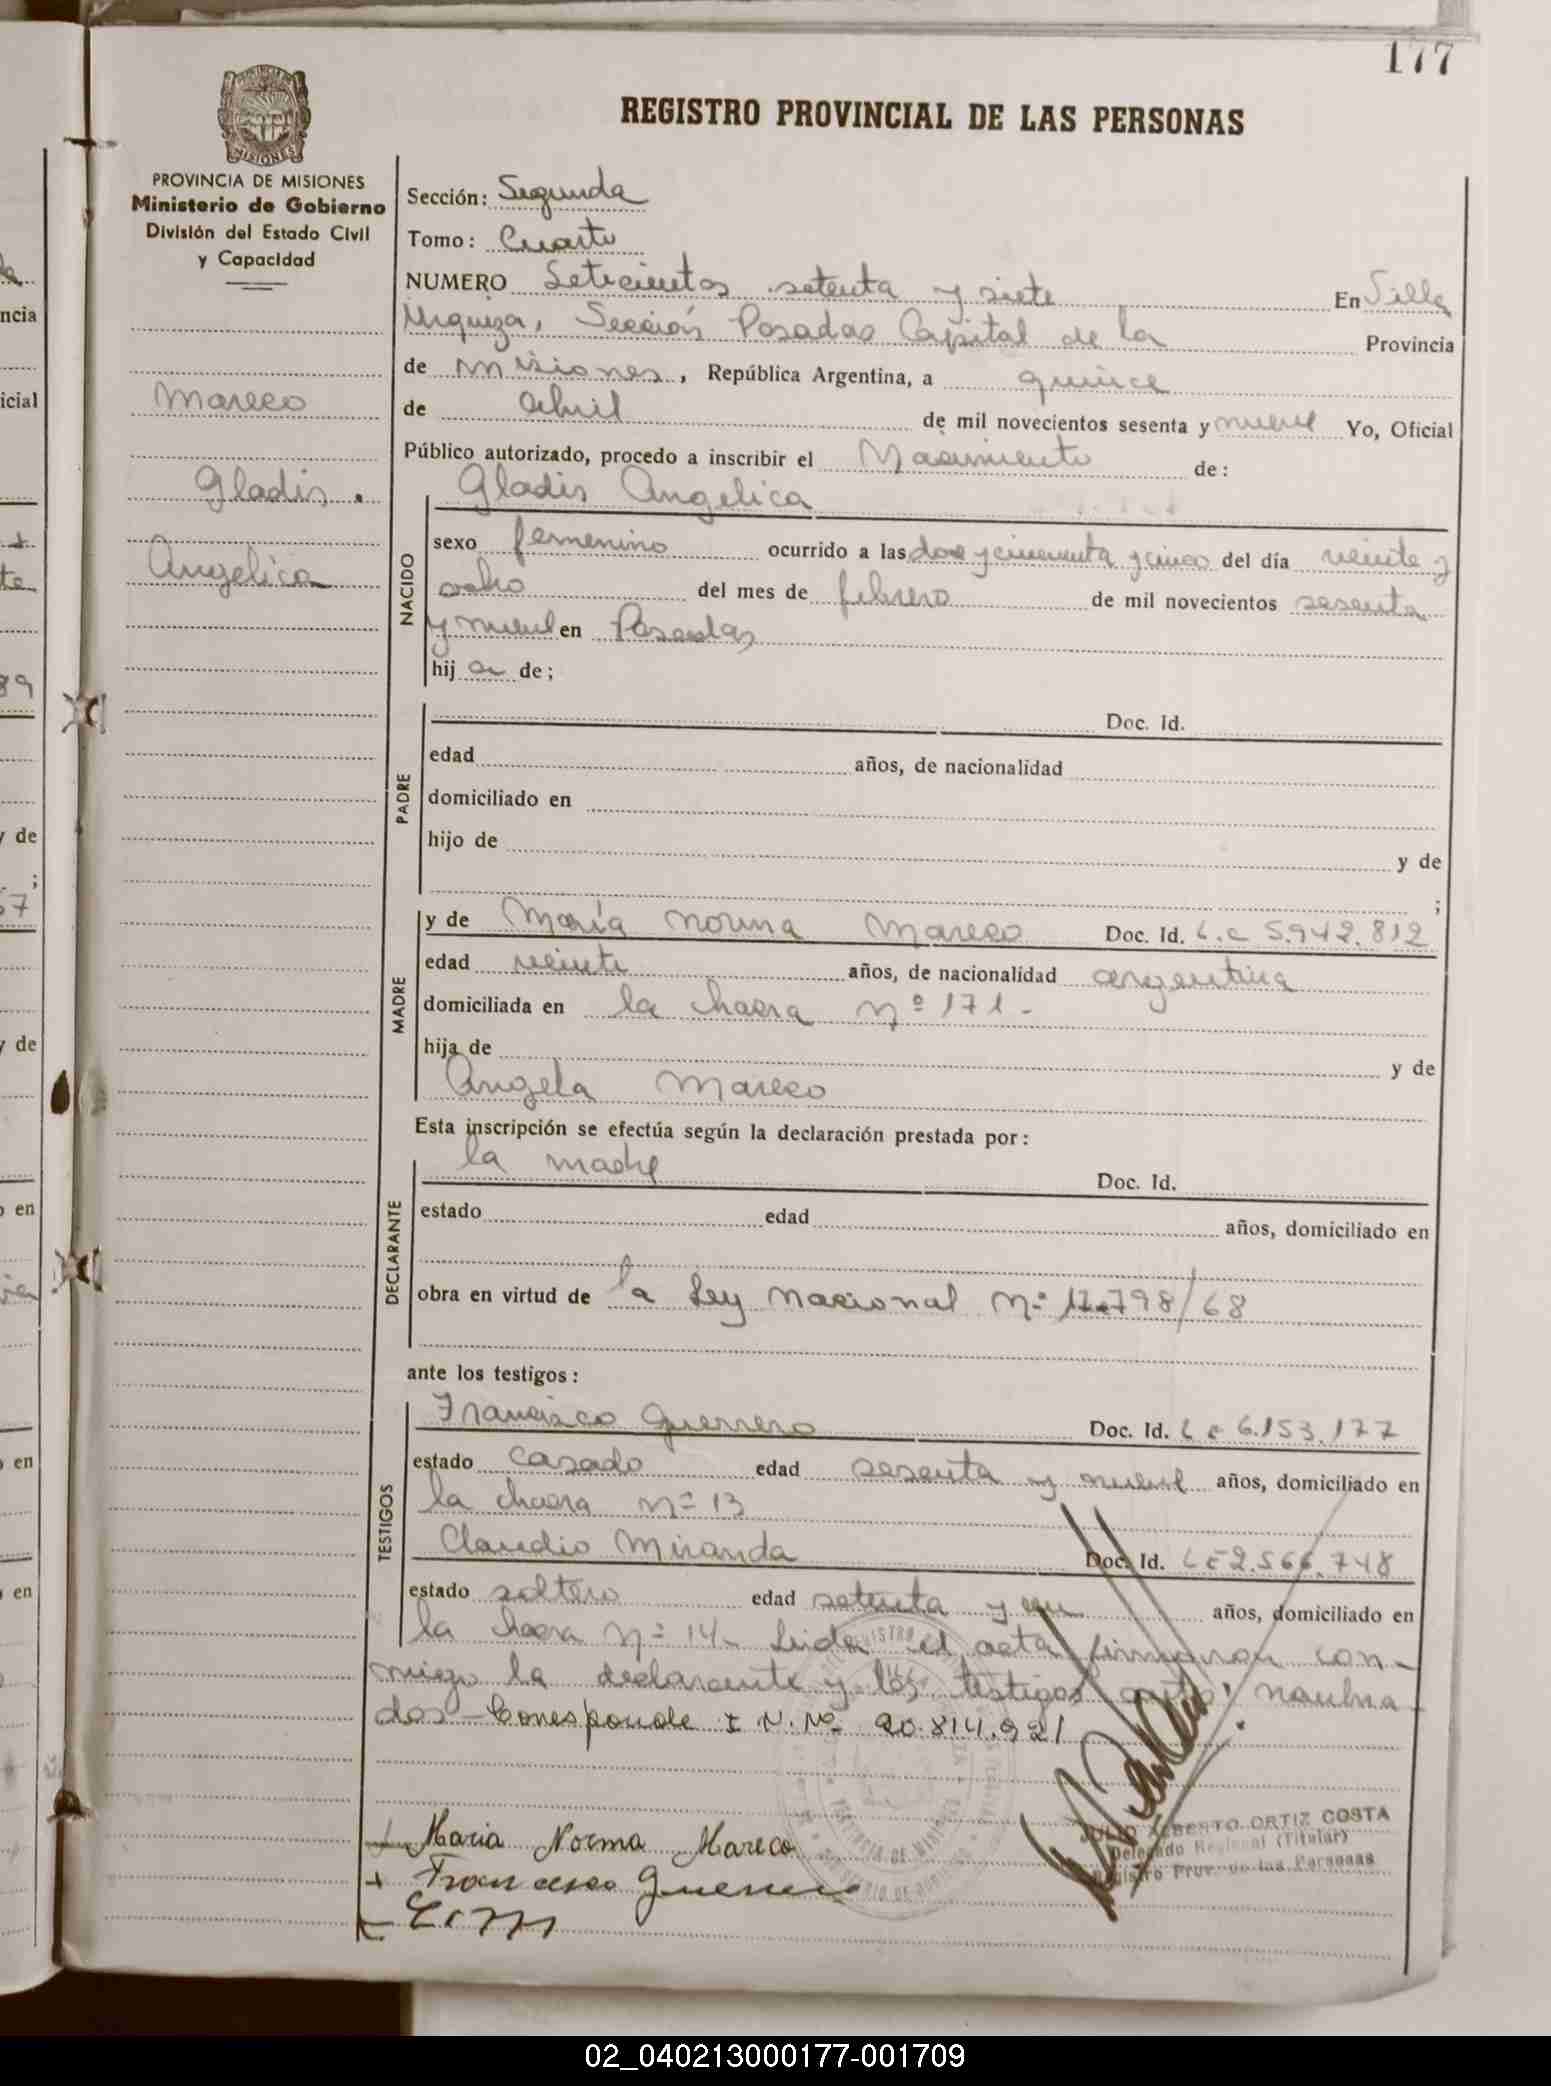 177
REGISTRO PROVINCIAL DE LAS PERSONAS
MISIONES
PROVINCIA DE MISIONES
Ministerio de Gobierno
División del Estado Civil
y Capacidad
Mareco
Gladis.
Angélica
Sección: Segunda
Tomo: Cuarto
NUMERO Setecientos setenta y siete En Villa
Urquiza, Sección Posadas Capital de la Provincia
de Misiones, República Argentina, a quince
de abril de mil novecientos sesenta y nueve Yo, Oficial
Público autorizado, procedo a inscribir el Nacimiento de:
Gladis Angelica
NACIDO
sexo femenino ocurrido a las doce y cincuenta y cinco del día veinte y
ocho del mes de febrero de mil novecientos sesenta
y nueve en Posadas
hij a de;
PADRE
Doc. Id.
edad años, de nacionalidad
domiciliado en
hijo de y de
;
MADRE
y de María Norma Mareco Doc. Id. L.C 5.942.812
edad veinte años, de nacionalidad argentina
domiciliada en la chacra Nº 171.-
hija de y de
Angela Mareco
Esta inscripción se efectúa según la declaración prestada por:
DECLARANTE
la madre Doc. Id.
estado edad años, domiciliado en
obra en virtud de la Ley Nacional Nº 17.798/68
ante los testigos:
TESTIGOS
Francisco Guerrero Doc. Id. L E 6.153.177
estado casado edad sesenta y nueve años, domiciliado en
la chacra Nº 13
Claudio Miranda Doc. Id. L E 2.566.748
estado soltero edad setenta y un años, domiciliado en
la chacra Nº 14- Leida el acta firmaron con-
migo la declarante y los testigos
dos- Corresponde I N. Nº 20.814.921
Maria Norma Mareco
+ Francisco Guerrero
JULIO ALBERTO ORTIZ COSTA
Delegado Regional (Titular)
Registro Prov. de las Personas
02_040213000177-001709